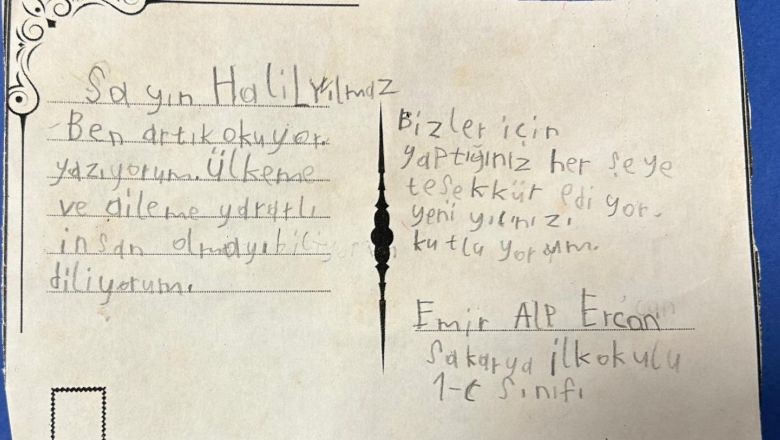 Sayın Halil Yılmaz
Ben artık okuyor.
yazıyorum. Ülkeme
ve aileme yararlı
insan olmayı
diliyorum.
Bizler için
yaptığınız her şeye
teşekkür edi yor.
yeni yılınızı
kutlu yorum.
Emir Alp Ercan
Sakarya ilkokulu
1-C Sınıfı